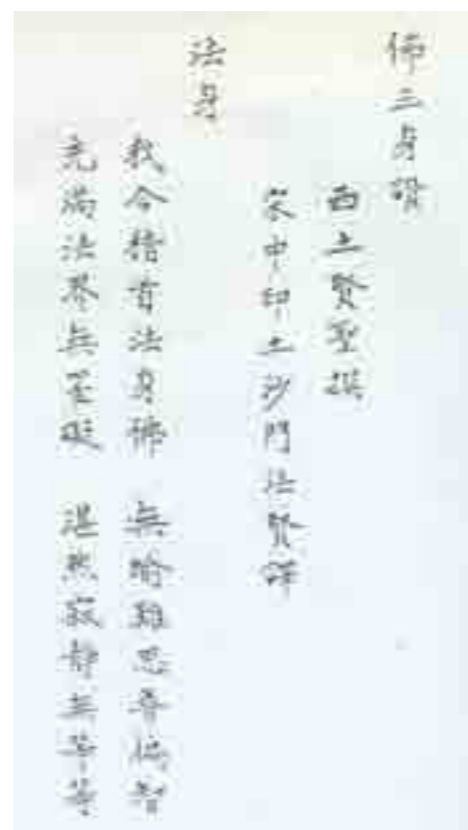 佛三身讚
西土賢聖撰
宋中印土沙門法賢譯
法身
我今稽首法身佛 無喻難思普徧智
充滿法界無罣礙 湛然寂靜無等等